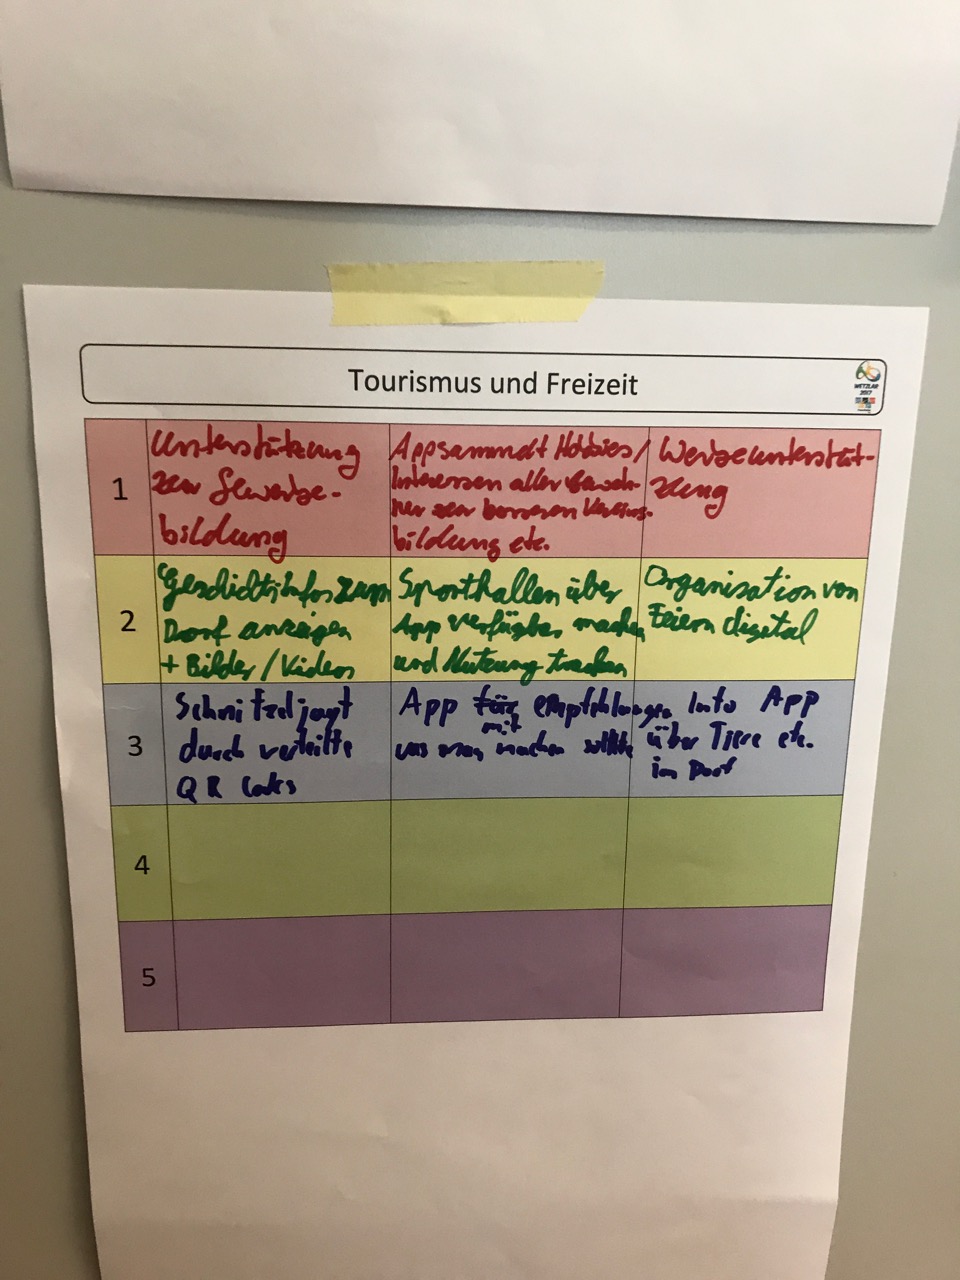 Tourismus und Freizeit
WETZLAR
2017
1
Unterstützung
zur Gewerbe-
bildung
App sammelt Hobbies/
Interessen aller Bewoh-
ner zur besseren Vereins-
bildung etc.
Werbeunterstüt-
zung
2
Geschichtsinfos zum
Dorf anzeigen
+ Bilder/Videos
Sporthallen über
App verfügbar machen
und Nutzung tracken
Organisation von
Feiern digital
3
Schnitzeljagt
durch verteilte
QR Codes
App für mit empfehlungen
was man machen sollte
Info App
über Tiere etc.
im Dorf
4
5